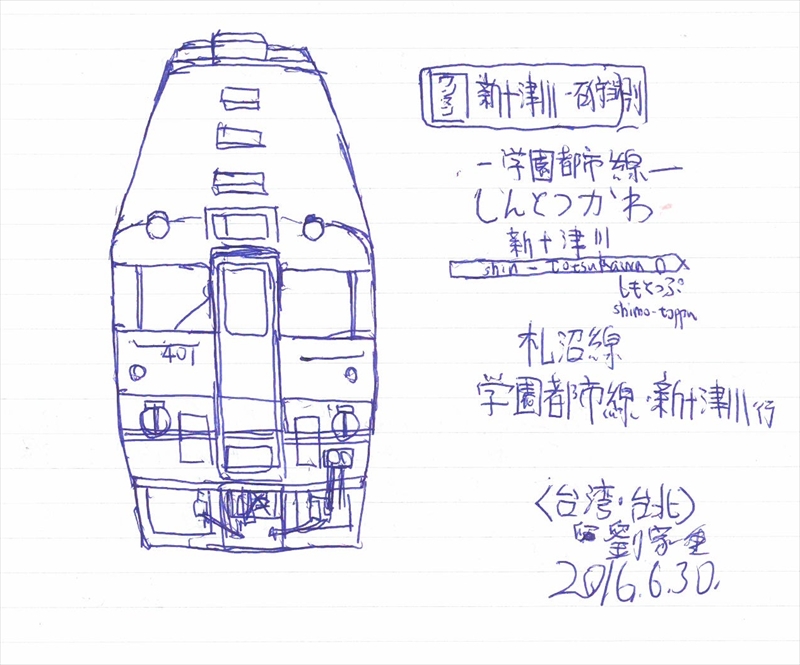 401
ワンマン 新十津川-石狩当別
-学園都市線-
しんとつかわ
新十津川
shin-totsukawa
しもとっぷ
shimo-toppu
札沼線
学園都市線・新十津川行
〈台湾・台北〉
劉家
2016.6.30.